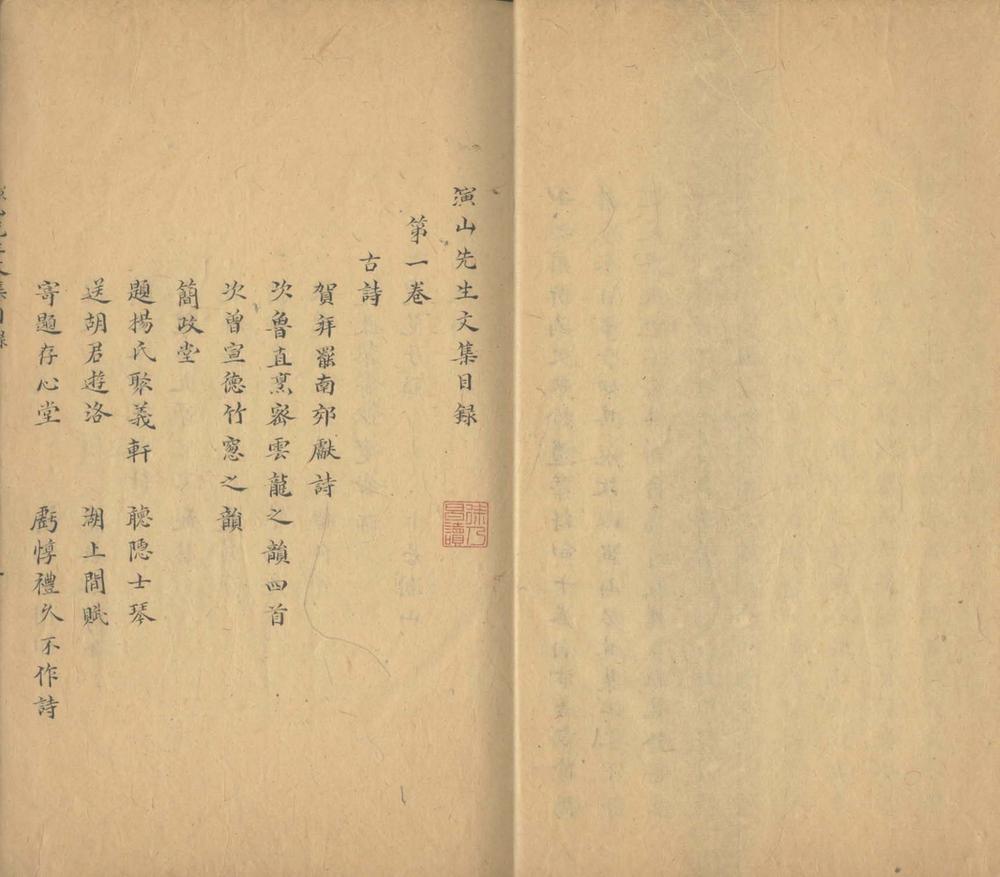 演山先生文集目録
第一卷
古詩
賀拜罷南郊獻詩
次魯直烹密雲龍之韻四首
次曾宣德竹窻之韻
簡政堂
題揚氏聚義軒 聽隠士琴
送胡君遊洛 湖上閒賦
寄題存心堂 虧惇禮久不作詩